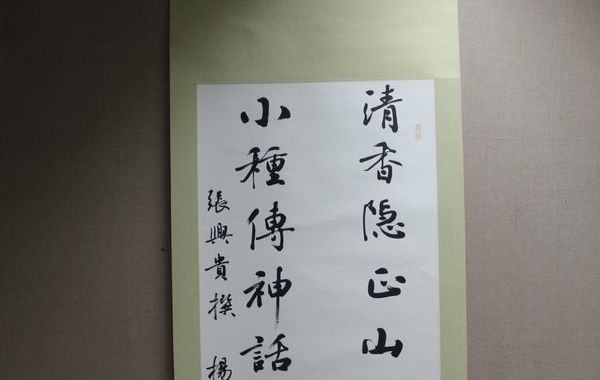 清香隐正山
小種傳神話
張興貴撰 楊